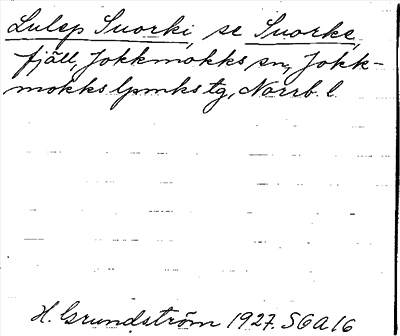 Lulep Suorki, se Suorke,
fjäll, Jokkmokks sn, Jokk-
mokks lpmks tg, Norrb. l.
H. Grundström 1927. SOA 16